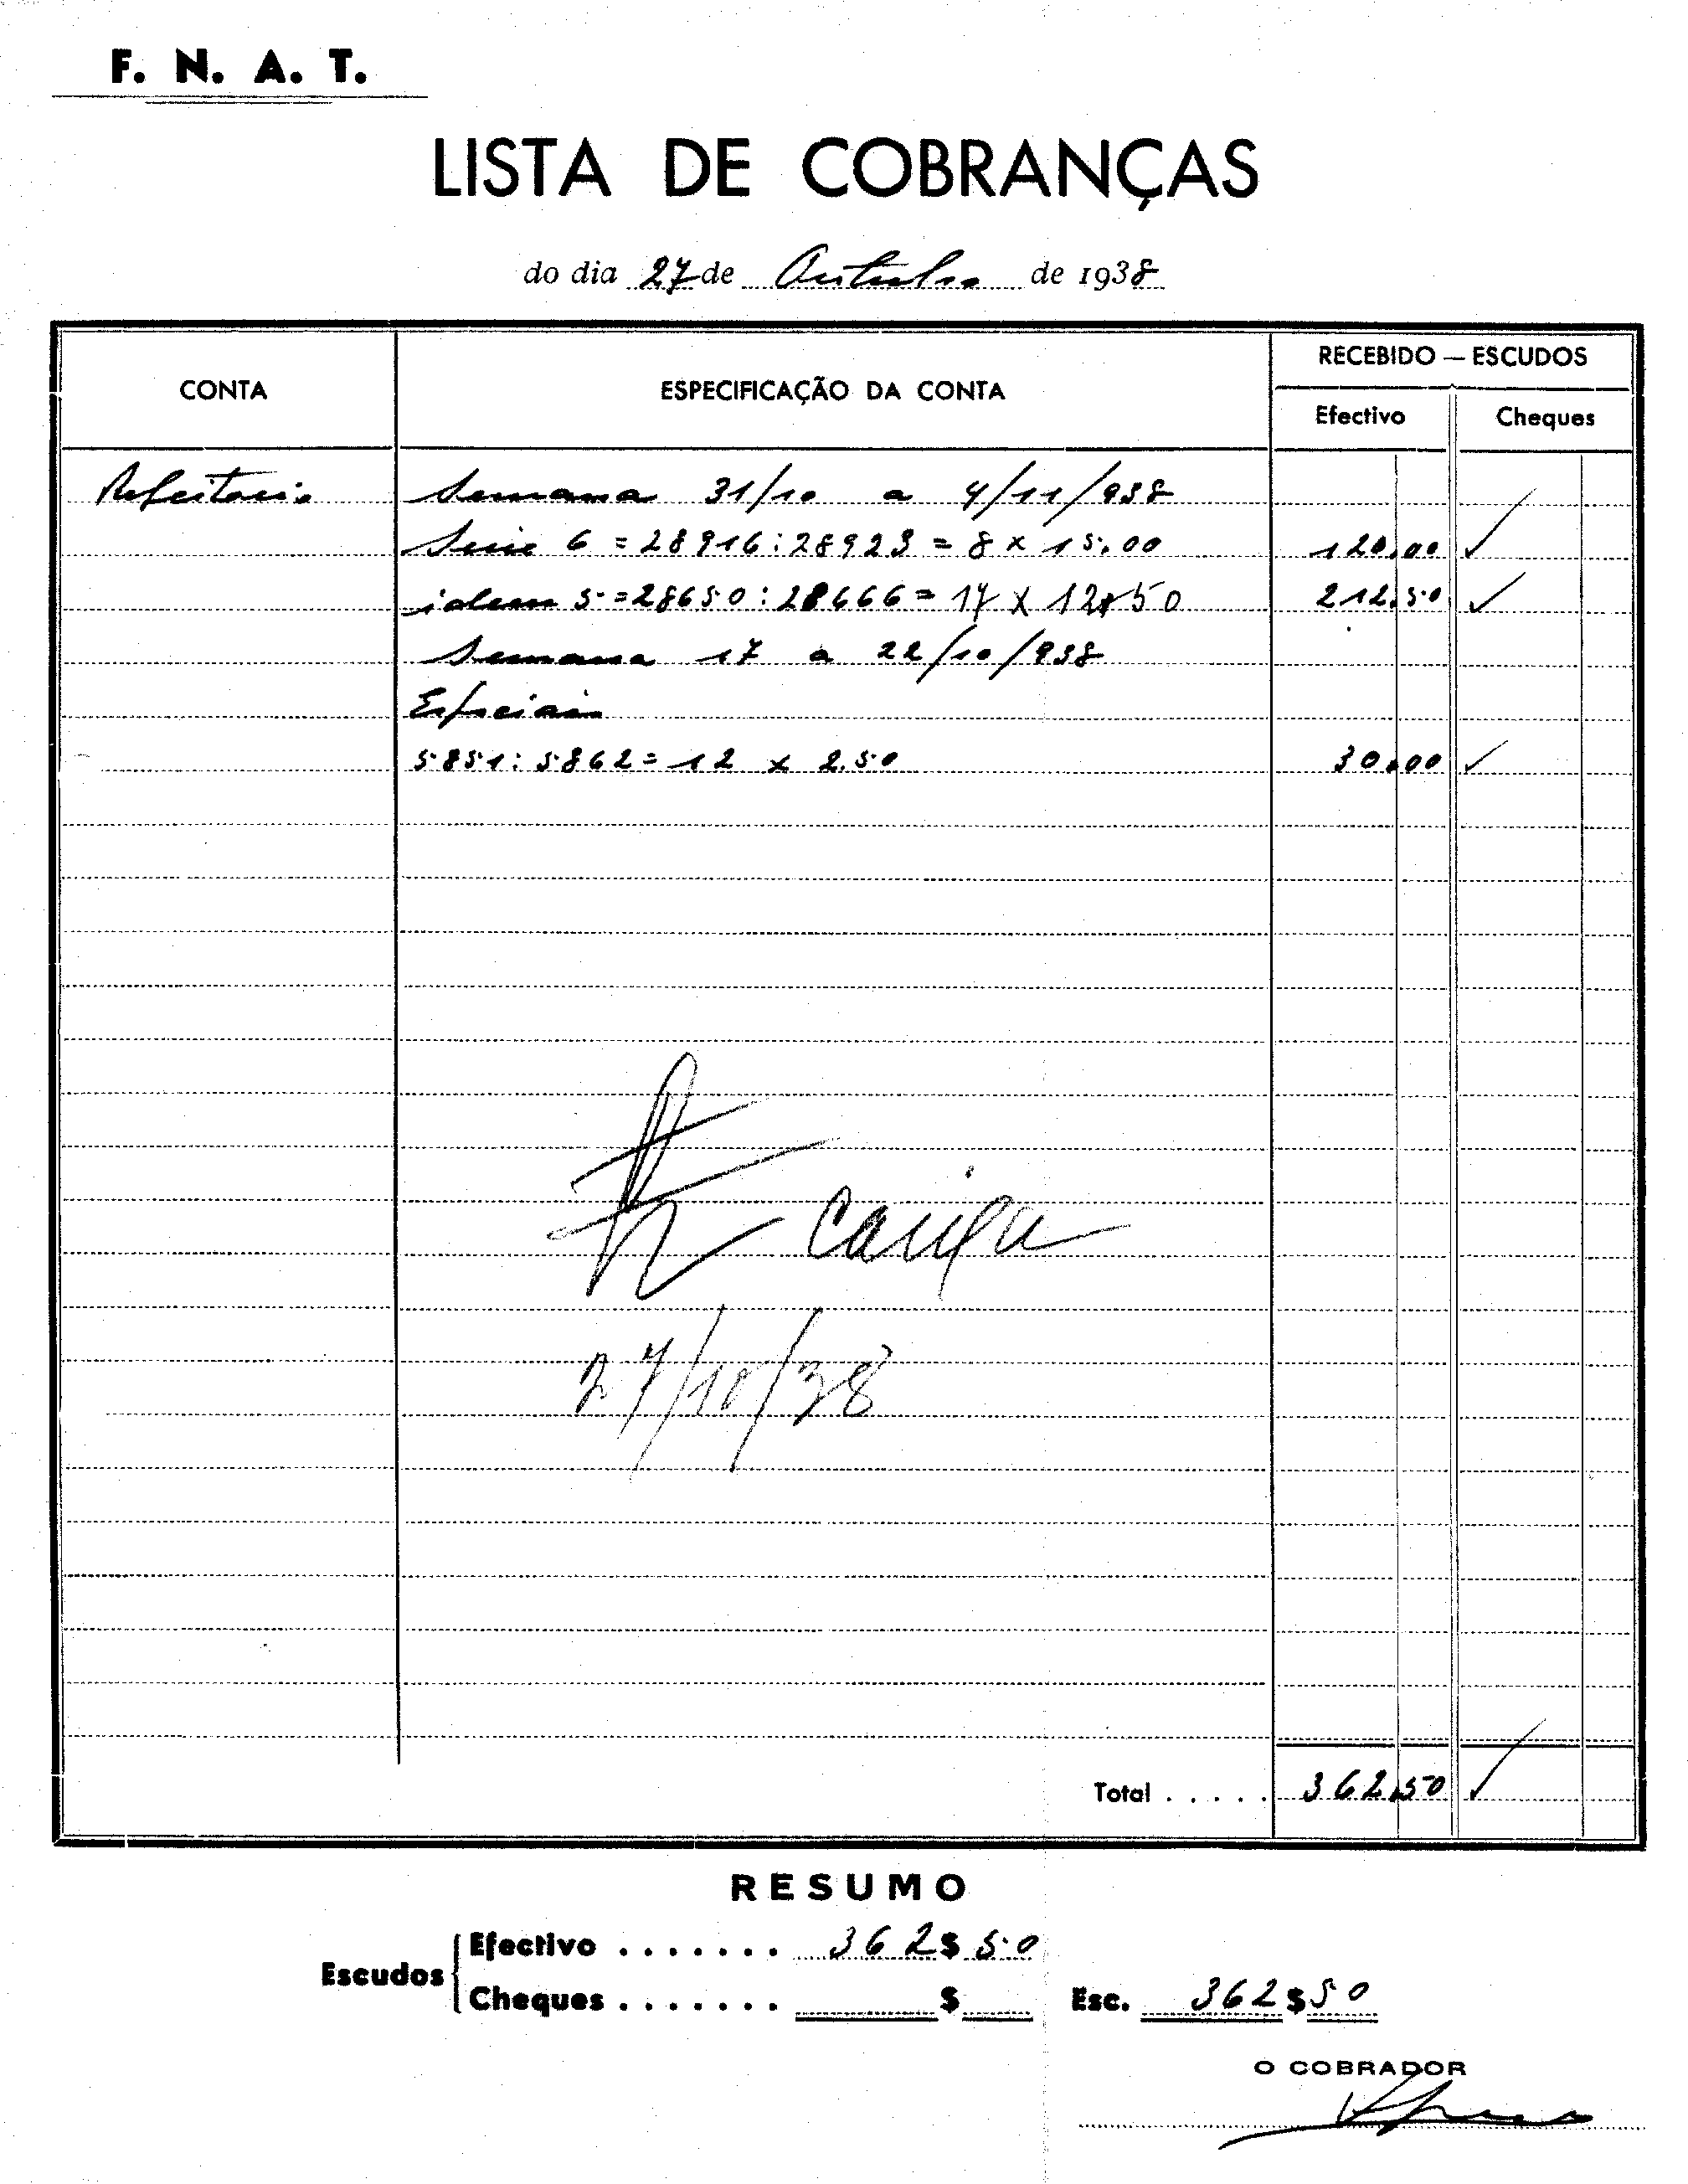 F. N. A. T.
LISTA DE COBRANÇAS
do dia 27 de Outubro de 1938
CONTA
ESPECIFICAÇÃO DA CONTA
RECEBIDO — ESCUDOS
Efectivo
Cheques
Refeitorio Semana 31/10 a 4/11/938
Serie 6 = 28916:28923 = 8 x 15.00 120,00
idem 5 = 28650:28666 = 17 x 12$50 212,50
Semana 17 a 22/10/938
Especiais
5851:5862 = 12 x 2.50 30,00
27/10/38
Total . . . . . 362,50
RESUMO
Escudos
Efectivo . . . . . . . 362$50
Cheques . . . . . . . $
Esc. 362$50
O COBRADOR